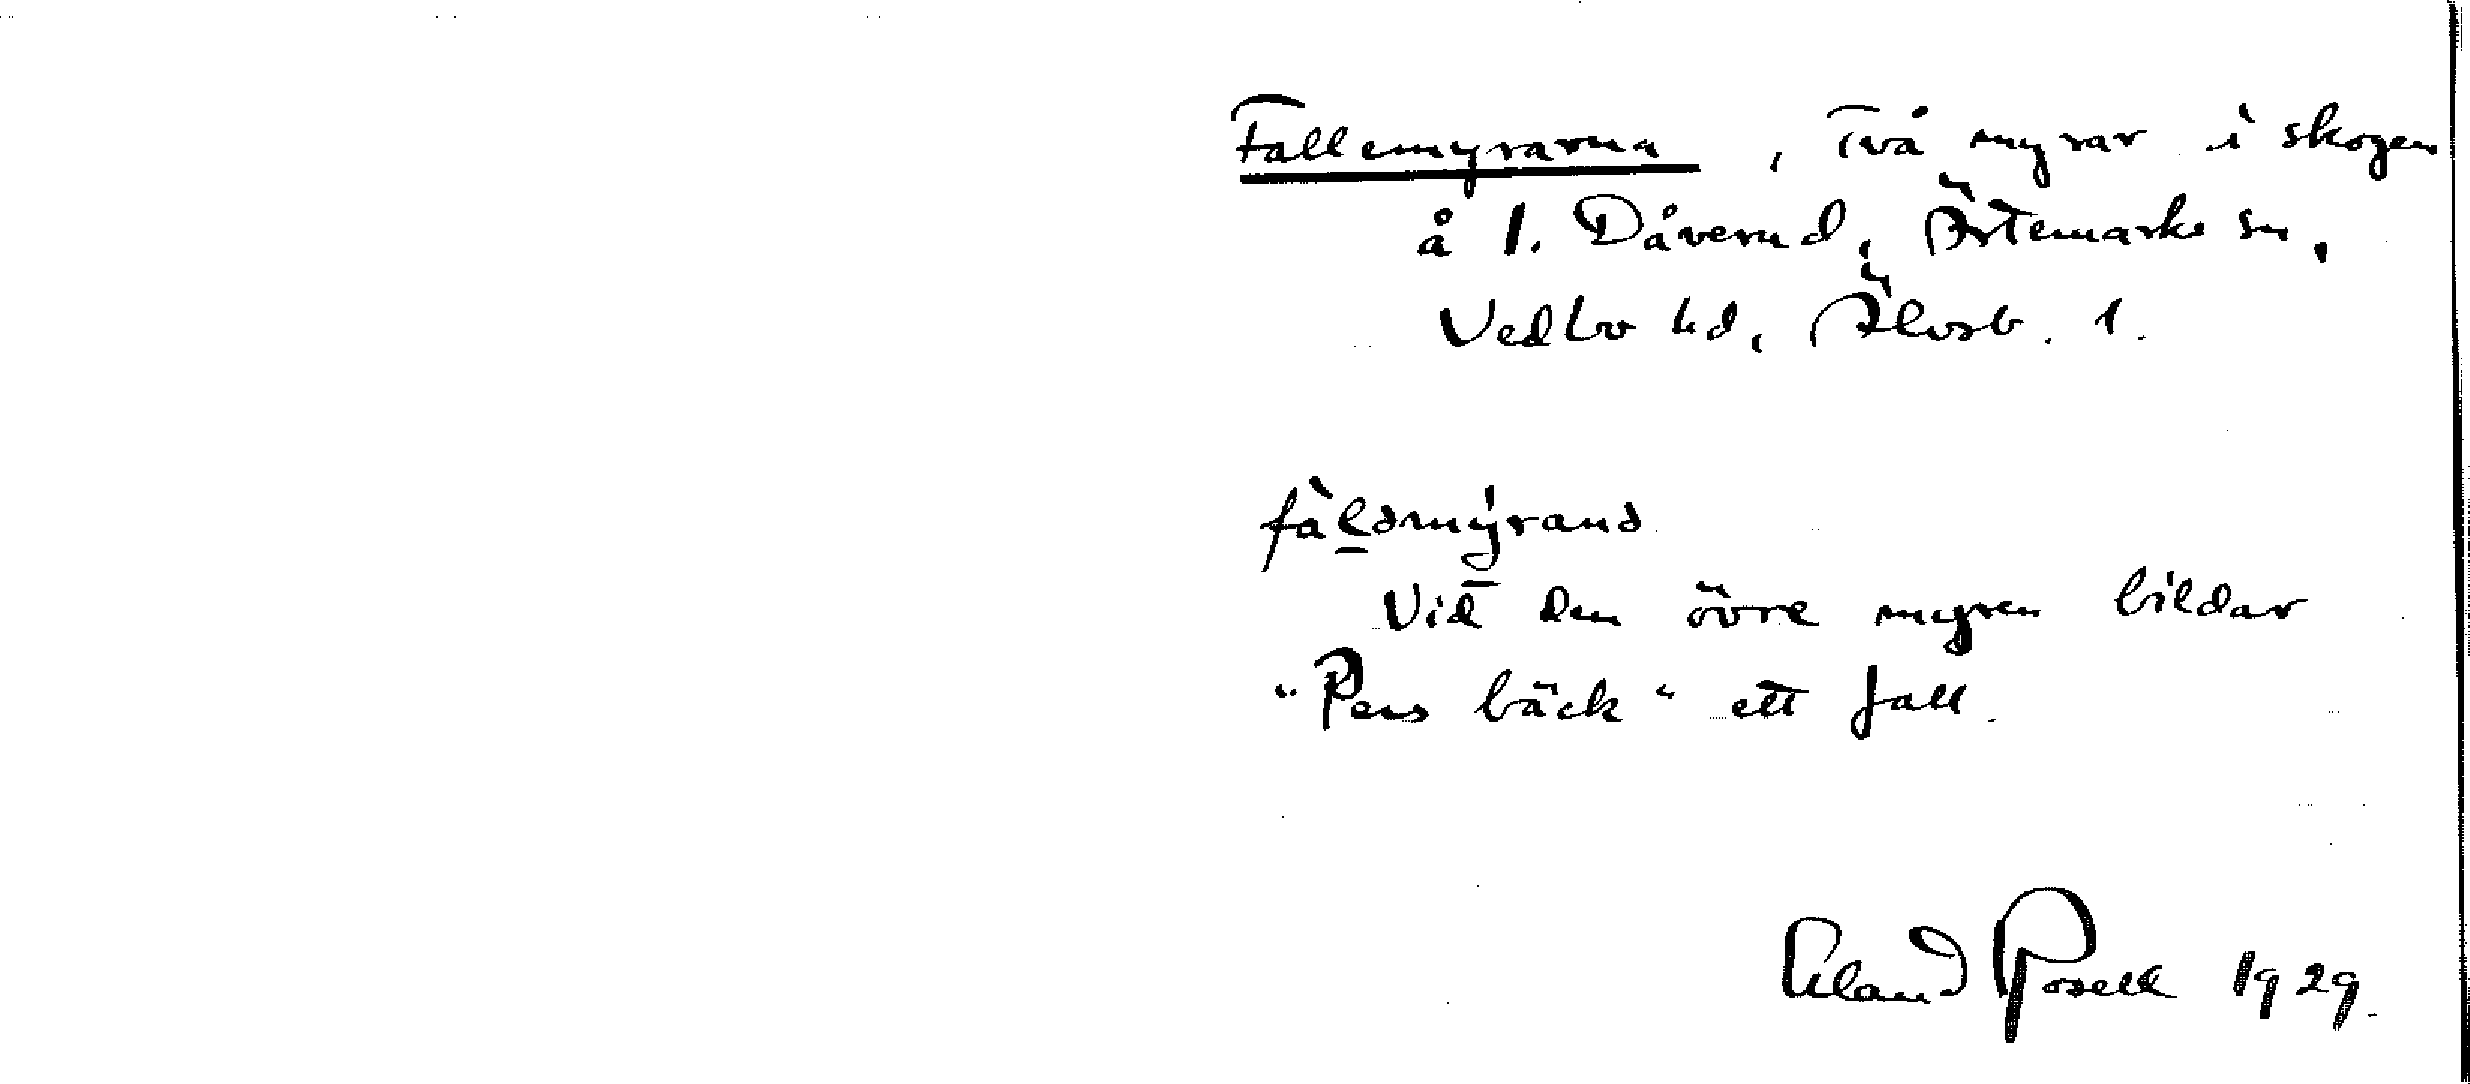 Fallemyrarna, Två myrar i skogen
å 1. Dåverud, Ärtemarks sn,
Vedbo hd, Älvsb. l.
fàlǝmýranǝ
Vid den övre myren bildar
"Pers bäck" ett fall.
Erland Rosell 1929.